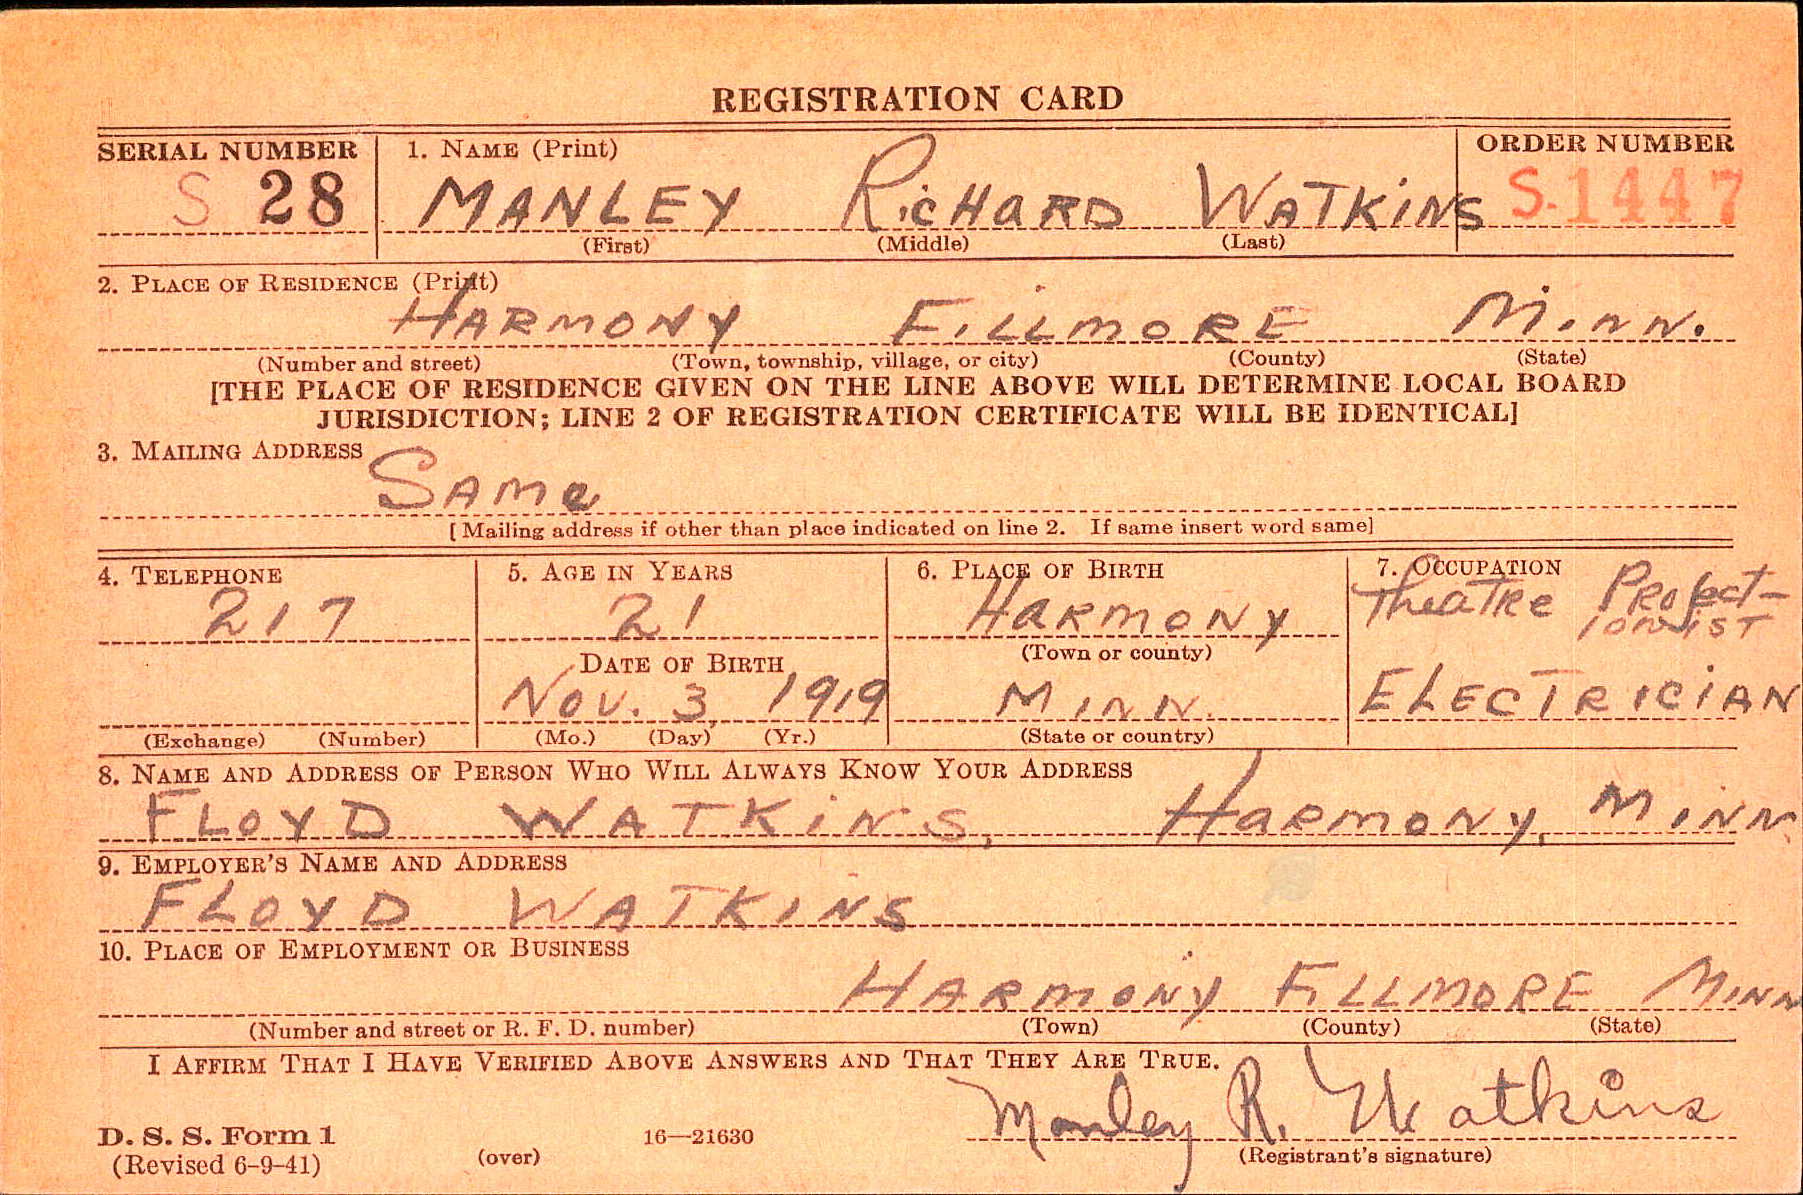 REGISTRATION CARD
SERIAL NUMBER 1. NAME (Print) ORDER NUMBER
S 28 MANLEY RicHaRD WATKiNS S-1447
(First) (Middle) (Last)
2. PLACE OF RESIDENCE (Print)
HARMONY FiLLMORE MiNN.
(Number and street) (Town, township, village, or city) (County) (State)
[THE PLACE OF RESIDENCE GIVEN ON THE LINE ABOVE WILL DETERMINE LOCAL BOARD
JURISDICTION; LINE 2 OF REGISTRATION CERTIFICATE WILL BE IDENTICAL]
3. MAILING ADDRESS
SAMe
[Mailing address if other than place indicated on line 2. If same insert word same]
4. TELEPHONE 5. AGE IN YEARS 6. PLACE OF BIRTH 7. OCCUPATION
217 21 HaRMONY TheaTRe PRoject-
ionisT
(Town or county)
DATE OF BIRTH
Nov. 3, 1919 MINN. ELECTRICiAN
(Exchange) (Number) (Mo.) (Day) (Yr.) (State or country)
8. NAME AND ADDRESS OF PERSON WHO WILL ALWAYS KNOW YOUR ADDRESS
FLOYD WATKiNS, HaRMONY, MINN
9. EMPLOYER'S NAME AND ADDRESS
FLOYD WATKINS
10. PLACE OF EMPLOYMENT OR BUSINESS
HARMONY FiLLMORE MINN
(Number and street or R. F. D. number) (Town) (County) (State)
I AFFIRM THAT I HAVE VERIFIED ABOVE ANSWERS AND THAT THEY ARE TRUE.
Manley R. Watkins
D. S. S. Form 1
(Revised 6-9-41) (over) 16—21630 (Registrant's signature)